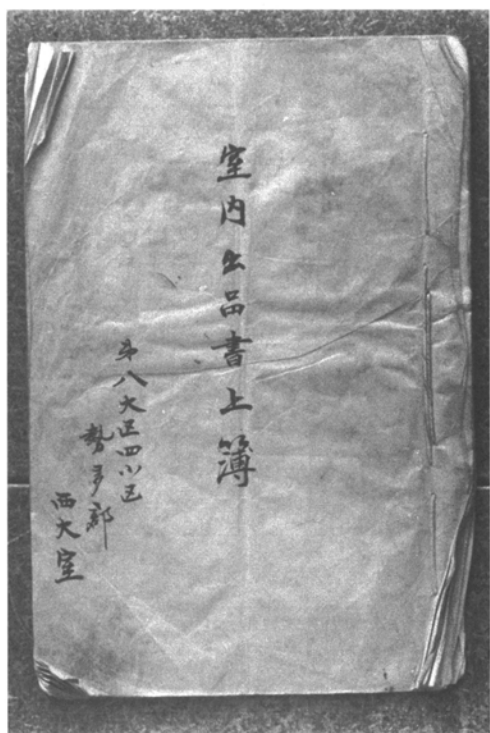 室内出品書上簿
第八大区四小区
勢多郡
西大室